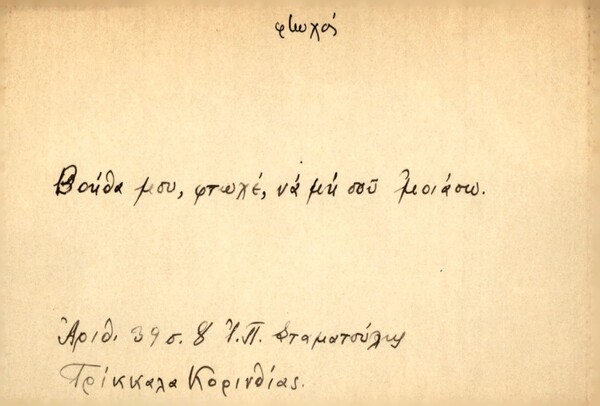 φτωχός
Βοήθα μου, φτωχέ, νά μή σοῦ μοιάσω.
Ἀριθ. 39 σ. 8 Ἰ. Π. Σταματούλης
Τρίκκαλα Κορινθίας.